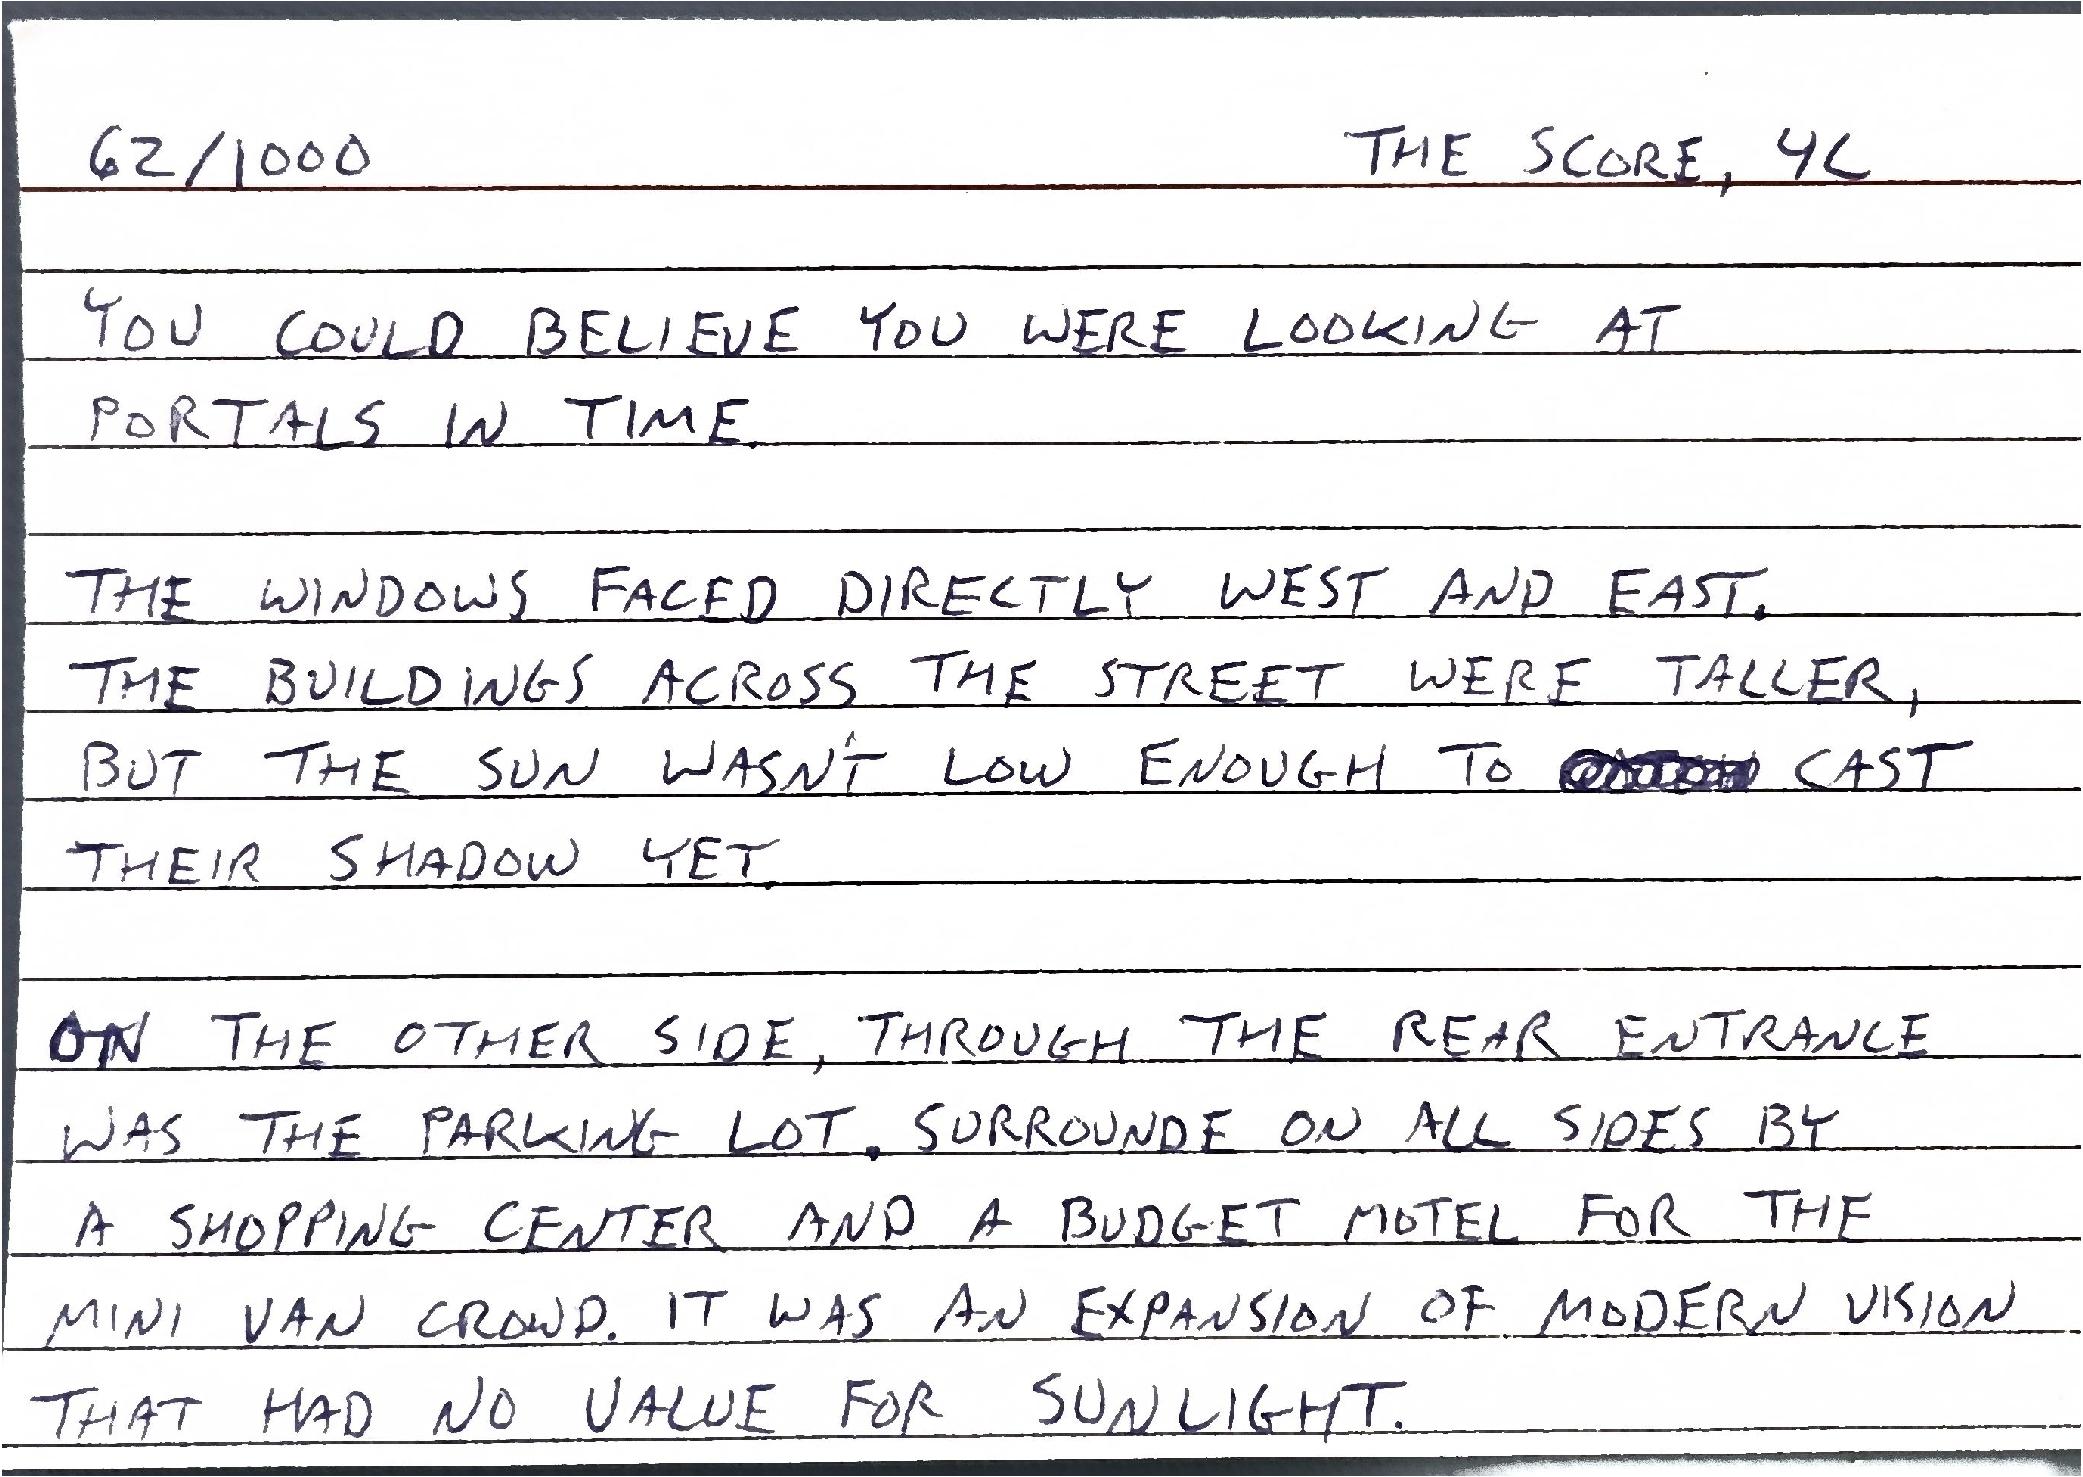 62/1000 THE SCORE, 4C
YOU COULD BELIEVE YOU WERE LOOKING AT
PORTALS IN TIME.
THE WINDOWS FACED DIRECTLY WEST AND EAST.
THE BUILDINGS ACROSS THE STREET WERE TALLER,
BUT THE SUN WASN'T LOW ENOUGH TO CAST
THEIR SHADOW YET.
ON THE OTHER SIDE, THROUGH THE REAR ENTRANCE
WAS THE PARKING LOT. SURROUNDE ON ALL SIDES BY
A SHOPPING CENTER AND A BUDGET MOTEL FOR THE
MINI VAN CROWD. IT WAS AN EXPANSION OF MODERN VISION
THAT HAD NO VALUE FOR SUNLIGHT.